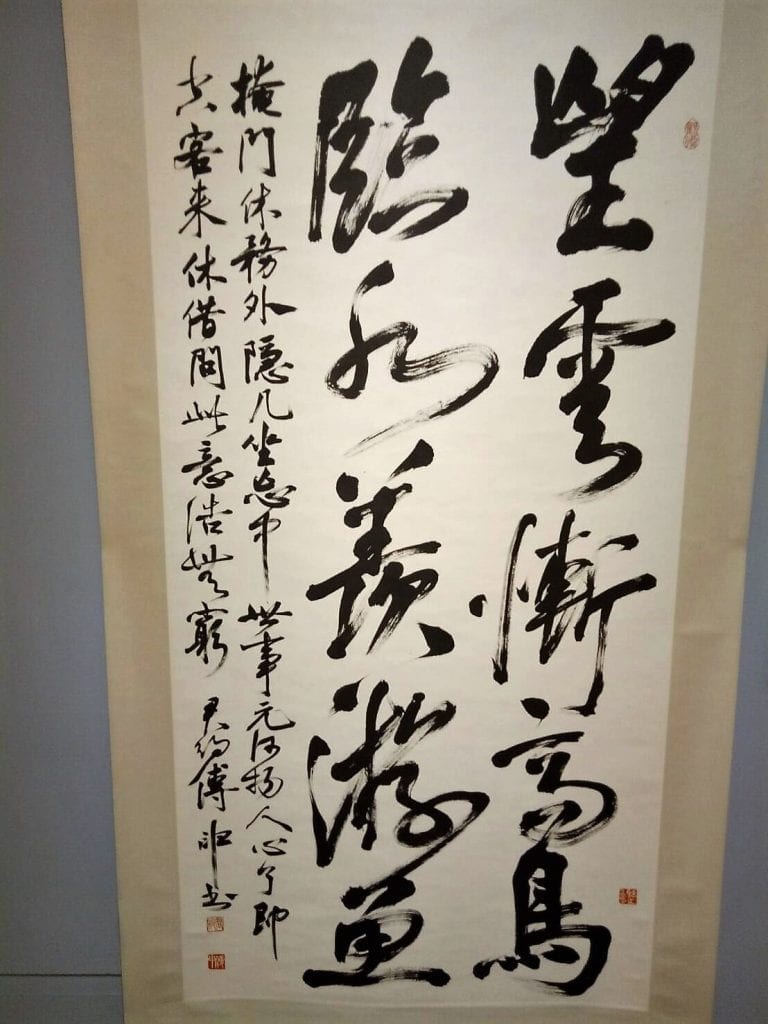 望雲慚高鳥
臨水羨游魚
掩門休務外隱几坐忘中世事元何物人心了即
空客来休借問此意浩無窮 君約傅申書